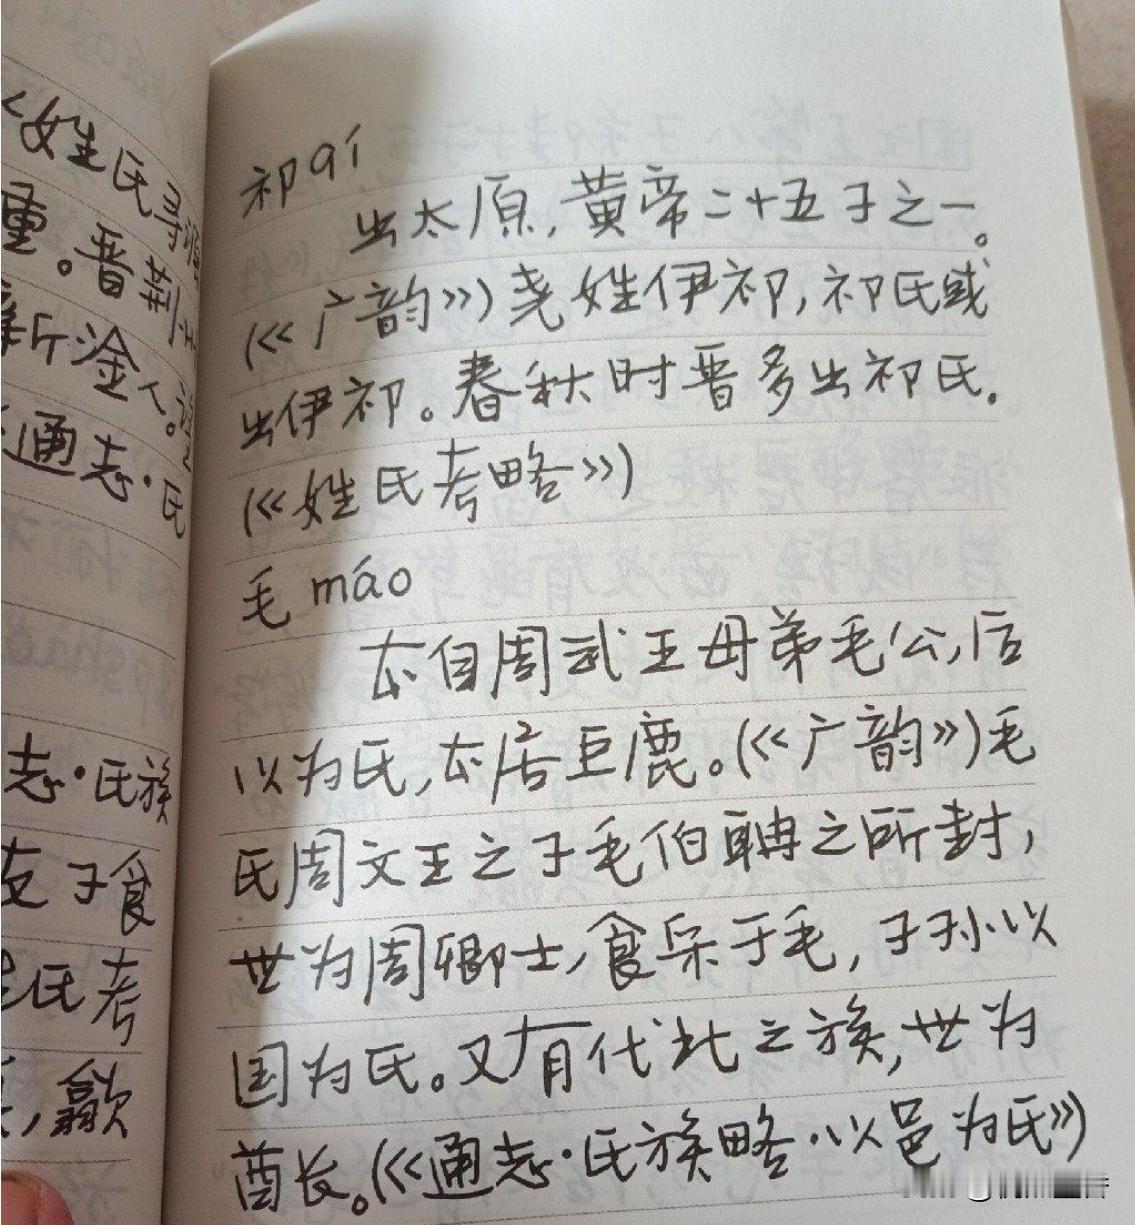 《姓氏寻源
重。晋荆州
新淦人。
通志·氏
志·氏族
友子食
氏考
，歙
祁qí
出太原，黄帝二十五子之一。
(《广韵》)尧姓伊祁，祁氏或
出伊祁。春秋时晋多出祁氏.
(《姓氏考略》)
毛 máo
本自周武王母弟毛公，后
以为氏，本居巨鹿。(《广韵》)毛
氏周文王之子毛伯聃之所封，
世为周卿士，食采于毛，子孙以
国为氏。又有代北之族，世为
酋长。(《通志·氏族略·以邑为氏》)